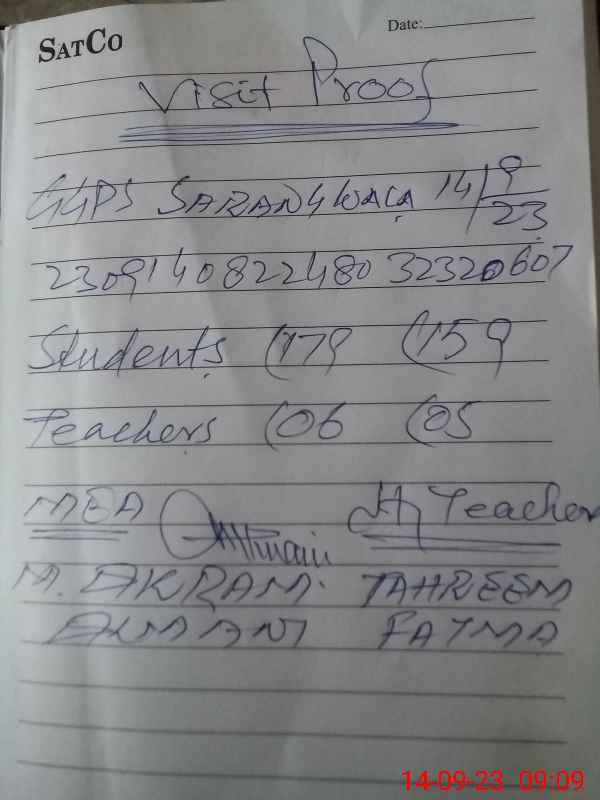 SATCO
Date:
Visit Proof
GGPS SARANGWALA 14/9/23
2309140822480 32320607
Students (179 (159
Teachers (06 (05
MEA H Teacher
M. AKRAM TAHREEM
FATMA
14-09-23 09:09